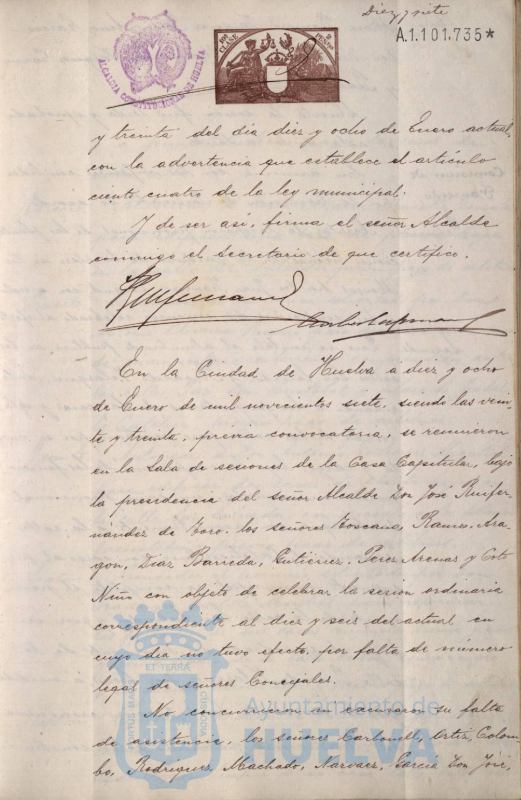 Diez y siete
A.1.101.735*
ALCALDIA CONSTITUCIONAL DE HUELVA
y treinta del dia diez y ocho de Enero actual,
con la advertencia que establece el artículo
ciento cuatro de la ley municipal.
Y de ser así, firma el señor Alcalde
conmigo el Secretario de que certifico.
En la Ciudad de Huelva á diez y ocho
de Enero de mil novecientos siete, siendo las vein-
te y treinta, previa convocatoria, se reunieron
en la Sala de sesiones de la Casa Capitular, bajo
la presidencia del señor Alcalde Don José Ruifer-
nández de Toro, los señores Toscano, Ramos, Ara-
gon, Diaz Barreda, Gutierrez, Perez Arenas y Coto
Niño con objeto de celebrar la sesión ordinaria
correspondiente al diez y seis del actual en
cuyo dia no tuvo efecto, por falta de número
legal de señores Concejales.
No concurrieron sin excusar su falta
de asistencia, los señores Carbonell, Ortiz, Colom-
bo, Rodriguez, Machado, Narvaez, García Don José,
ET TERRA
Ayuntamiento de
HUELVA